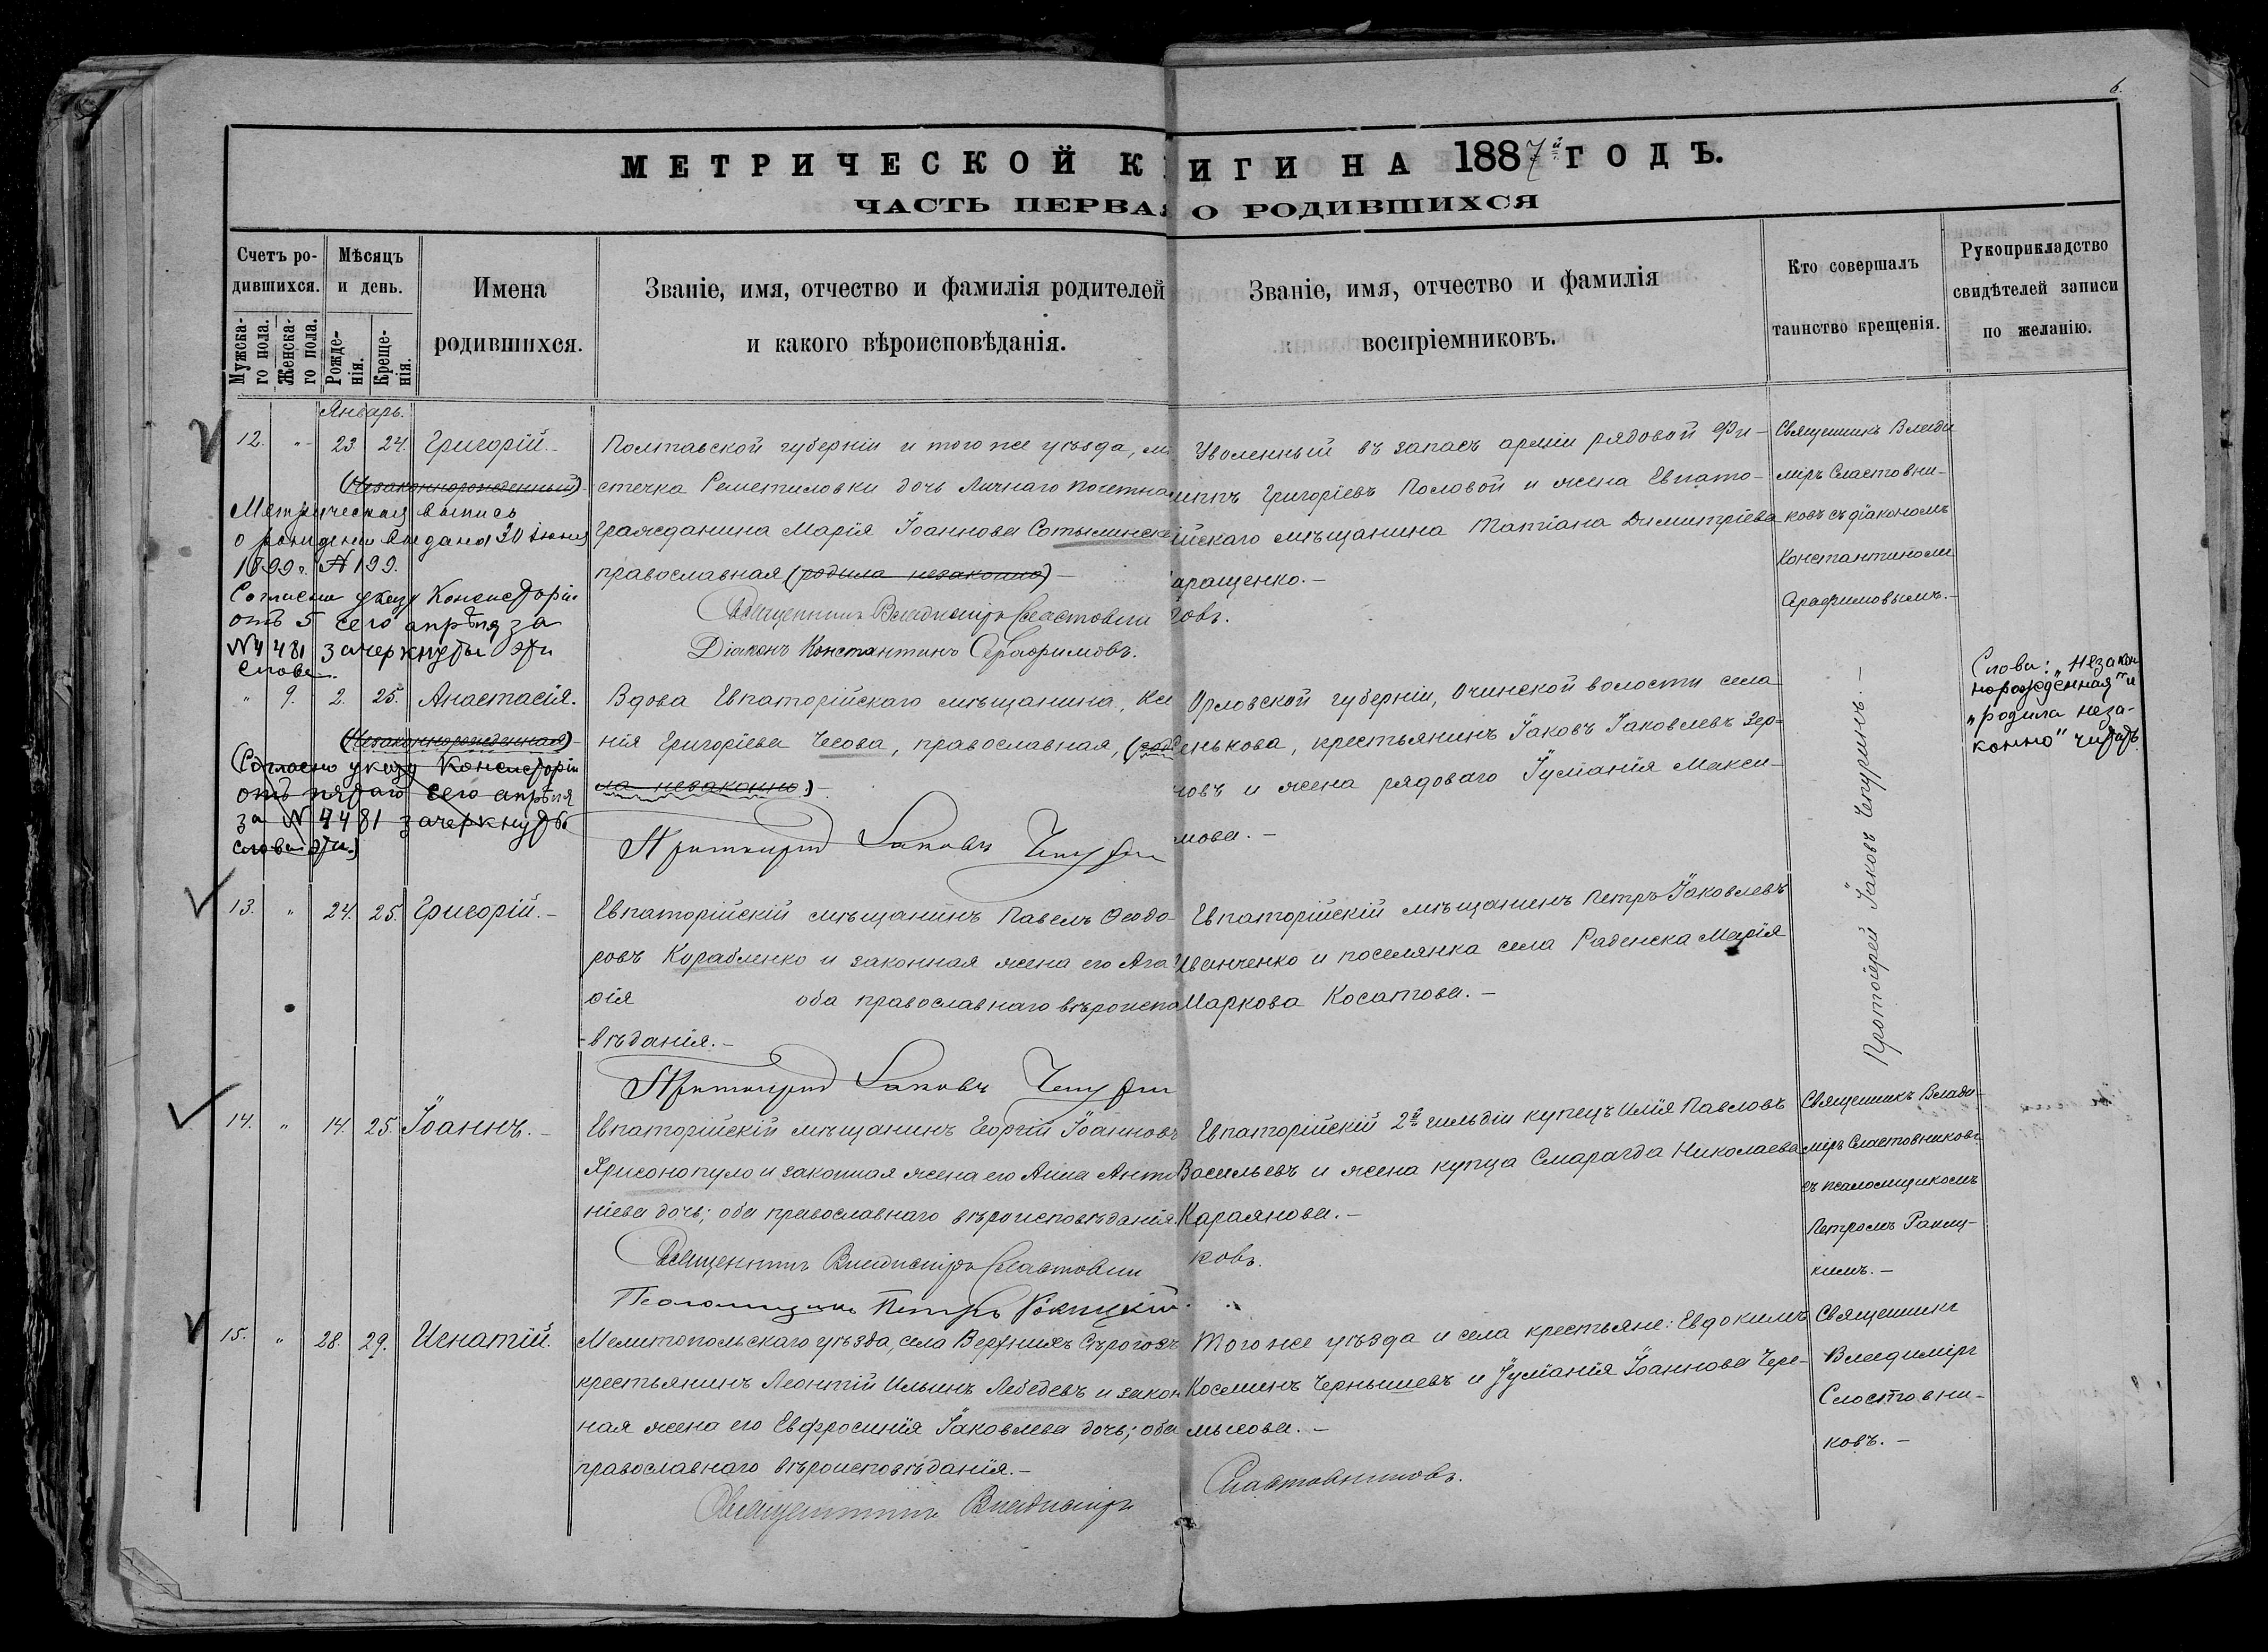 6.
МЕТРИЧЕСКОЙ К ИГИ НА 1887й ГОДЪ.
ЧАСТЬ ПЕРВАЯ О РОДИВШИХСЯ
Счетъ родившихся.
Мужскаго пола.
Женскаго пола.
Мѣсяцъ и день.
Рожденія.
Крещенія.
Имена
родившихся.
Званіе, имя, отчество и фамилія родителей
и какого вѣроисповѣданія.
Званіе, имя, отчество и фамилія
воспріемниковъ.
Кто совершалъ
таинство крещенія.
Рукоприкладство
свидѣтелей записи
по желанію.
Январь.
12. " 23 24. Григорій.
(Незаконнорожденный)
Метрическая выпись
о рожденіи выдана 30 іюня
1899г. №199.
Согласно указу Консисторіи
отъ 5 сего апрѣля за
№4481 зачеркнуты эти
слова.
Полтавской губерніи и того же уѣзда, мѣ
стечка Решетиловки дочь личнаго почетна
гражданина Марія Іоаннова Сотыминска
православная (родила незаконно) —
Священникъ Владиміръ Сластовни
ковъ.
Діаконъ Константинъ Серафимовъ.
Уволенный въ запасъ арміи рядовой Фи-
липпъ Григоріевъ Половой и жена Евпато-
рійскаго мѣщанина Татіана Димитріева
аращенко. —
Священникъ Влади
міръ Сластовни-
ковъ съ діакономъ
Константиномъ
Серафимовымъ. —
" 9. 2. 25. Анастасія.
(Незаконнорожденная)
(Согласно указу Консисторіи
отъ пятаго сего апрѣля
за №4481 зачеркнуты
слова эти.)
Вдова Евпаторійскаго мѣщанина, Ксе
нія Григоріева Чесова, православная, (роди
ла незаконно) —
Протоіерей Іаковъ Чепурин
Орловской губерніи, Очинской волости села
енькова, крестьянинъ Іаковъ Іаковлевъ Зер-
новъ и жена рядоваго Іуліанія Макси-
мова. —
Протоіерей Іаковъ Чепуринъ. —
Слова: „незакон
норожденная" и
„родила неза-
конно" читать
13. " 24. 25. Григорій. —
Евпаторійскій мѣщанинъ Павелъ Ѳеодо
ровъ Корабленко и законная жена его Ага
ѳія оба православнаго вѣроиспо
-вѣданія. —
Протоіерей Іаковъ Чепурин
Евпаторійскій мѣщанинъ Петръ Іаковлевъ
Иванченко и поселянка села Раденска Марія
Маркова Косатова. —
14. " 14. 25. Іоаннъ. —
Евпаторійскій мѣщанинъ Георгій Іоанновъ
Хрисонопуло и законная жена его Анна Анто
ніева дочь; оба православнаго вѣроисповѣданія.
Священникъ Владиміръ Сластовни
ковъ.
Псаломщикъ Петръ Ракицкій.
Евпаторійскій 2й гильдіи купецъ Илія Павловъ
Васильевъ и жена купца Смарагда Николаева
Караянова. —
Священникъ Влади-
міръ Сластовниковъ
съ псаломщикомъ
Петромъ Ракиц-
кимъ. —
15. " 28. 29. Игнатій.
Мелитопольскаго уѣзда, села Верхнихъ Сѣрогозъ
крестьянинъ Леонтій Ильинъ Лебедевъ и закон
ная жена его Евфросинія Іаковлева дочь; оба
православнаго вѣроисповѣданія. —
Священникъ Владиміръ
Сластовниковъ.
Того же уѣзда и села крестьяне: Евдокимъ
Косминъ Чернышевъ и Іуліанія Іоаннова Чере-
мысова. —
Священникъ
Владиміръ
Сластовни-
ковъ. —